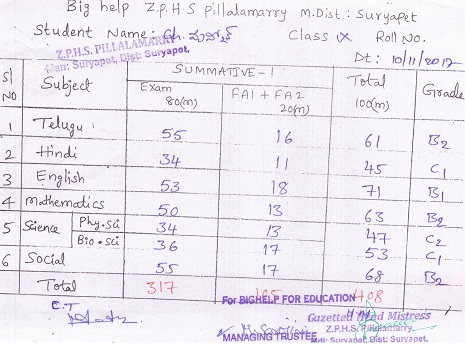 Big help Z.P.H.S Pillalamarry M.Dist: Suryapet
Student Name: Ch. Class X Roll No.
Z.P.H.S. PILLALAMARRY
Man: Suryapet, Dist: Suryapet.
Dt: 10/11/2017
Sl NO Subject SUMMATIVE-1 Total 100(m) Grade
Exam 80(m) FA1 + FA2 20(m)
1 Telugu 55 16 61 B2
2 Hindi 34 11 45 C1
3 English 53 18 71 B1
4 Mathematics 50 13 63 B2
5 Science Phy.sci 34 13 47 C2
Bio.sci 36 17 53 C1
6 Social 55 17 68 B2
Total 317 408
C.T
For BIGHELP FOR EDUCATION
MANAGING TRUSTEE
Gazetted Head Mistress
Z.P.H.S. Pillalamarry
Mdl: Suryapet Dist: Suryapet